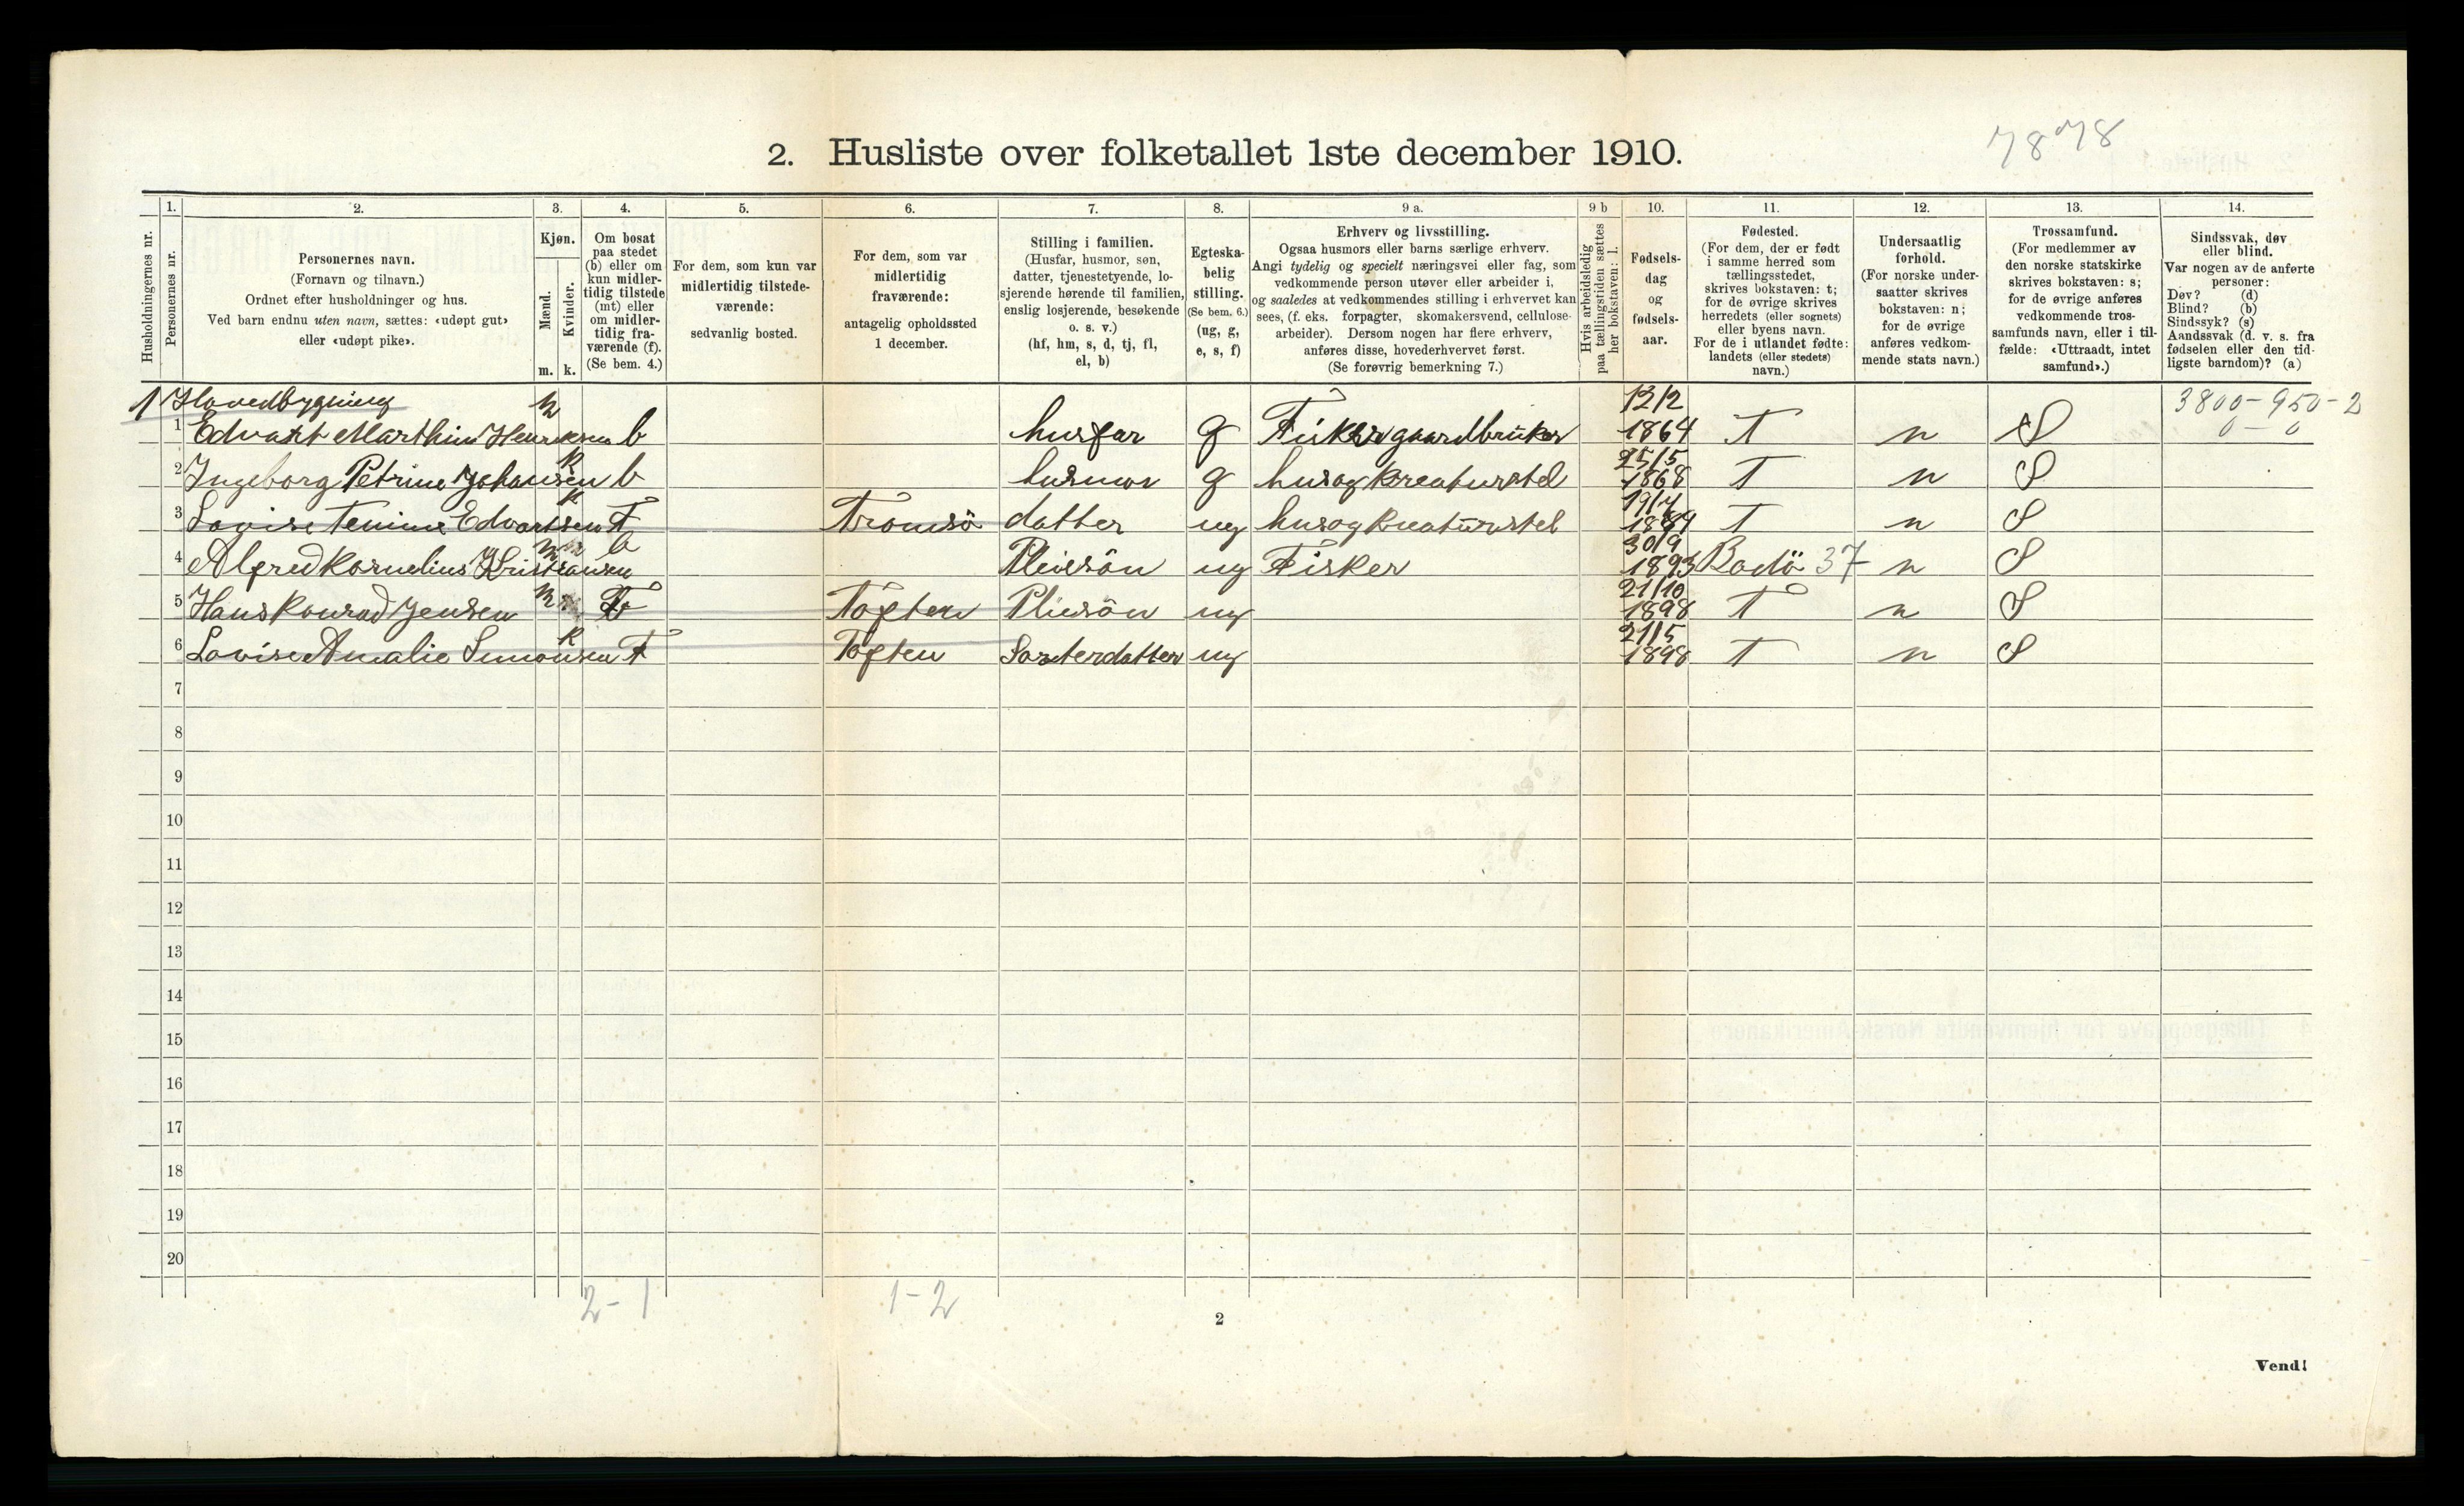 2. Husliste over folketallet 1ste december 1910.
7878
Husholdningernes nr.
1.
Personernes nr.
2.
Personernes navn.
(Fornavn og tilnavn.)
Ordnet efter husholdninger og hus.
Ved barn endnu uten navn, sættes: «udøpt gut»
eller «udøpt pike».
3.
Kjøn.
Mænd.
Kvinder.
m. k.
4.
Om bosat
paa stedet
(b) eller om
kun midler-
tidig tilstede
(mt) eller
om midler-
tidig fra-
værende (f).
(Se bem. 4.)
5.
For dem, som kun var
midlertidig tilstede-
værende:
sedvanlig bosted.
6.
For dem, som var
midlertidig
fraværende:
antagelig opholdssted
1 december.
7.
Stilling i familien.
(Husfar, husmor, søn,
datter, tjenestetyende, lo-
sjerende hørende til familien,
enslig losjerende, besøkende
o. s. v.)
(hf, hm, s, d, tj, fl,
el, b)
8.
Egteska-
belig
stilling.
(Se bem. 6.)
(ug, g,
e, s, f)
9 a.
Erhverv og livsstilling.
Ogsaa husmors eller barns særlige erhverv.
Angi tydelig og specielt næringsvei eller fag, som
vedkommende person utøver eller arbeider i,
og saaledes at vedkommendes stilling i erhvervet kan
sees, (f. eks. forpagter, skomakersvend, cellulose-
arbeider). Dersom nogen har flere erhverv,
anføres disse, hovederhvervet først.
(Se forøvrig bemerkning 7.)
9 b
Hvis arbeidsledig
paa tællingstiden sættes
her bokstaven: l.
10.
Fødsels-
dag
og
fødsels-
aar.
11.
Fødested.
(For dem, der er født
i samme herred som
tællingsstedet,
skrives bokstaven: t;
for de øvrige skrives
herredets (eller sognets)
eller byens navn.
For de i utlandet fødte:
landets (eller stedets)
navn.)
12.
Undersaatlig
forhold.
(For norske under-
saatter skrives
bokstaven: n;
for de øvrige
anføres vedkom-
mende stats navn.)
13.
Trossamfund.
(For medlemmer av
den norske statskirke
skrives bokstaven: s;
for de øvrige anføres
vedkommende tros-
samfunds navn, eller i til-
fælde: «Uttraadt, intet
samfund».)
14.
Sindssvak, døv
eller blind.
Var nogen av de anførte
personer:
Døv? (d)
Blind? (b)
Sindssyk? (s)
Aandssvak (d. v. s. fra
fødselen eller den tid-
ligste barndom)? (a)
1 Hovedbygning m 12/2 3800-950-2
1 Edvart Marthin Henriksen b husfar g Fisker gaardbruker 1864 T n S 0-0
2 Ingeborg Petrine Johansen k b husmor g husogkreaturstel 25/5 1868 T n S
3 Lovise Tenine Edvartsen k F Tromsö datter ug husogkreaturstel 19/7 1889 T n S
4 Alfred Kornelius Kristiansen m b Pleiesön ug Fisker 30/9 1893 Bodö 37 n S
5 Hans Konrad Jensen m F Toften Pleiesön ug 21/10 1898 T n S
6 Lovise Amalie Simonsen k F Toften Sösterdatter ug 21/5 1898 T n S
7
8
9
10
11
12
13
14
15
16
17
18
19
20
2-1 1-2
2
Vend!